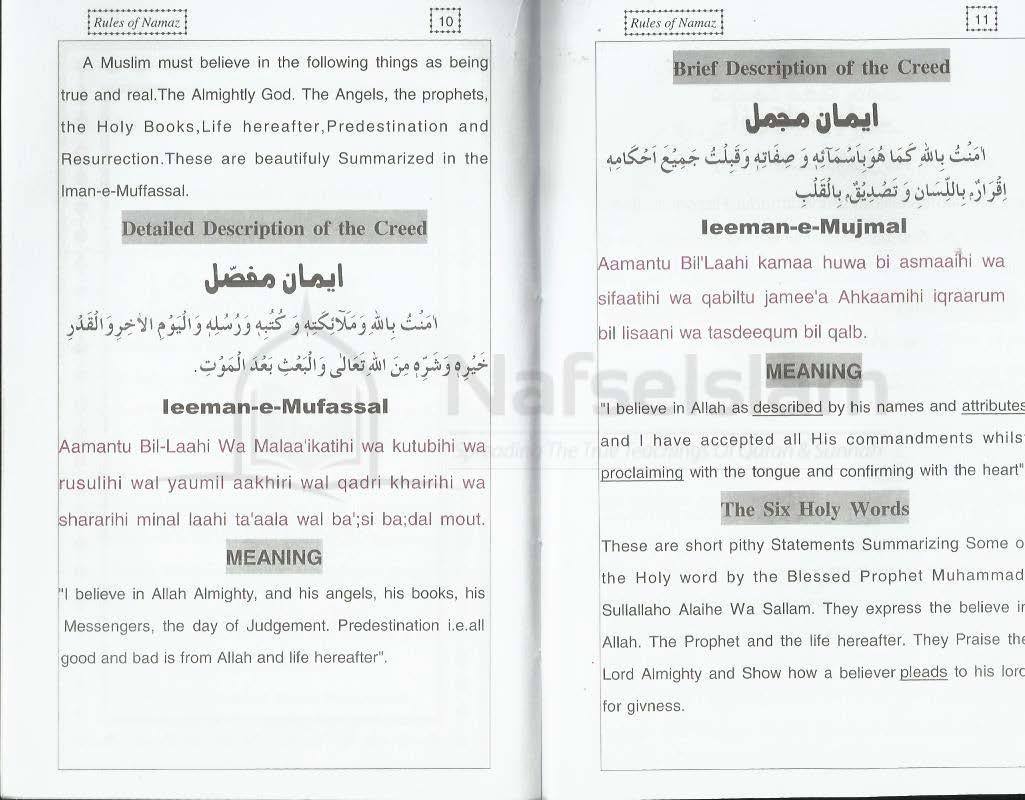 Rules of Namaz
10
A Muslim must believe in the following things as being
true and real.The Almightly God. The Angels, the prophets,
the Holy Books,Life hereafter,Predestination and
Resurrection.These are beautifuly Summarized in the
Iman-e-Muffassal.
Detailed Description of the Creed
ایمان مفصّل
اٰمَنْتُ بِاللهِ وَمَلٰٓائِكَتِهٖ وَ كُتُبِهٖ وَرُسُلِهٖ وَالْيَوْمِ الْاٰخِرِ وَالْقَدْرِ
خَيْرِهٖ وَشَرِّهٖ مِنَ اللهِ تَعَالٰى وَالْبَعْثِ بَعْدَ الْمَوْتِ.
Ieeman-e-Mufassal
Aamantu Bil-Laahi Wa Malaa'ikatihi wa kutubihi wa
rusulihi wal yaumil aakhiri wal qadri khairihi wa
shararihi minal laahi ta'aala wal ba';si ba;dal mout.
MEANING
"I believe in Allah Almighty, and his angels, his books, his
Messengers, the day of Judgement. Predestination i.e.all
good and bad is from Allah and life hereafter".
Rules of Namaz
11
Brief Description of the Creed
ایمان مجمل
اٰمَنْتُ بِاللهِ كَمَا هُوَ بِاَسْمَآئِهٖ وَ صِفَاتِهٖ وَقَبِلْتُ جَمِيْعَ اَحْكَامِهٖ
اِقْرَارٌ بِاللِّسَانِ وَ تَصْدِيْقٌ بِالْقَلْبِ
Ieeman-e-Mujmal
Aamantu Bil'Laahi kamaa huwa bi asmaaihi wa
sifaatihi wa qabiltu jamee'a Ahkaamihi iqraarum
bil lisaani wa tasdeequm bil qalb.
MEANING
"I believe in Allah as described by his names and attributes
and I have accepted all His commandments whilst
proclaiming with the tongue and confirming with the heart"
The Six Holy Words
These are short pithy Statements Summarizing Some o
the Holy word by the Blessed Prophet Muhammad
Sullallaho Alaihe Wa Sallam. They express the believe in
Allah. The Prophet and the life hereafter. They Praise the
Lord Almighty and Show how a believer pleads to his lord
for givness.
NafseIslam
Spreading The True Teachings Of Quran & Sunnah